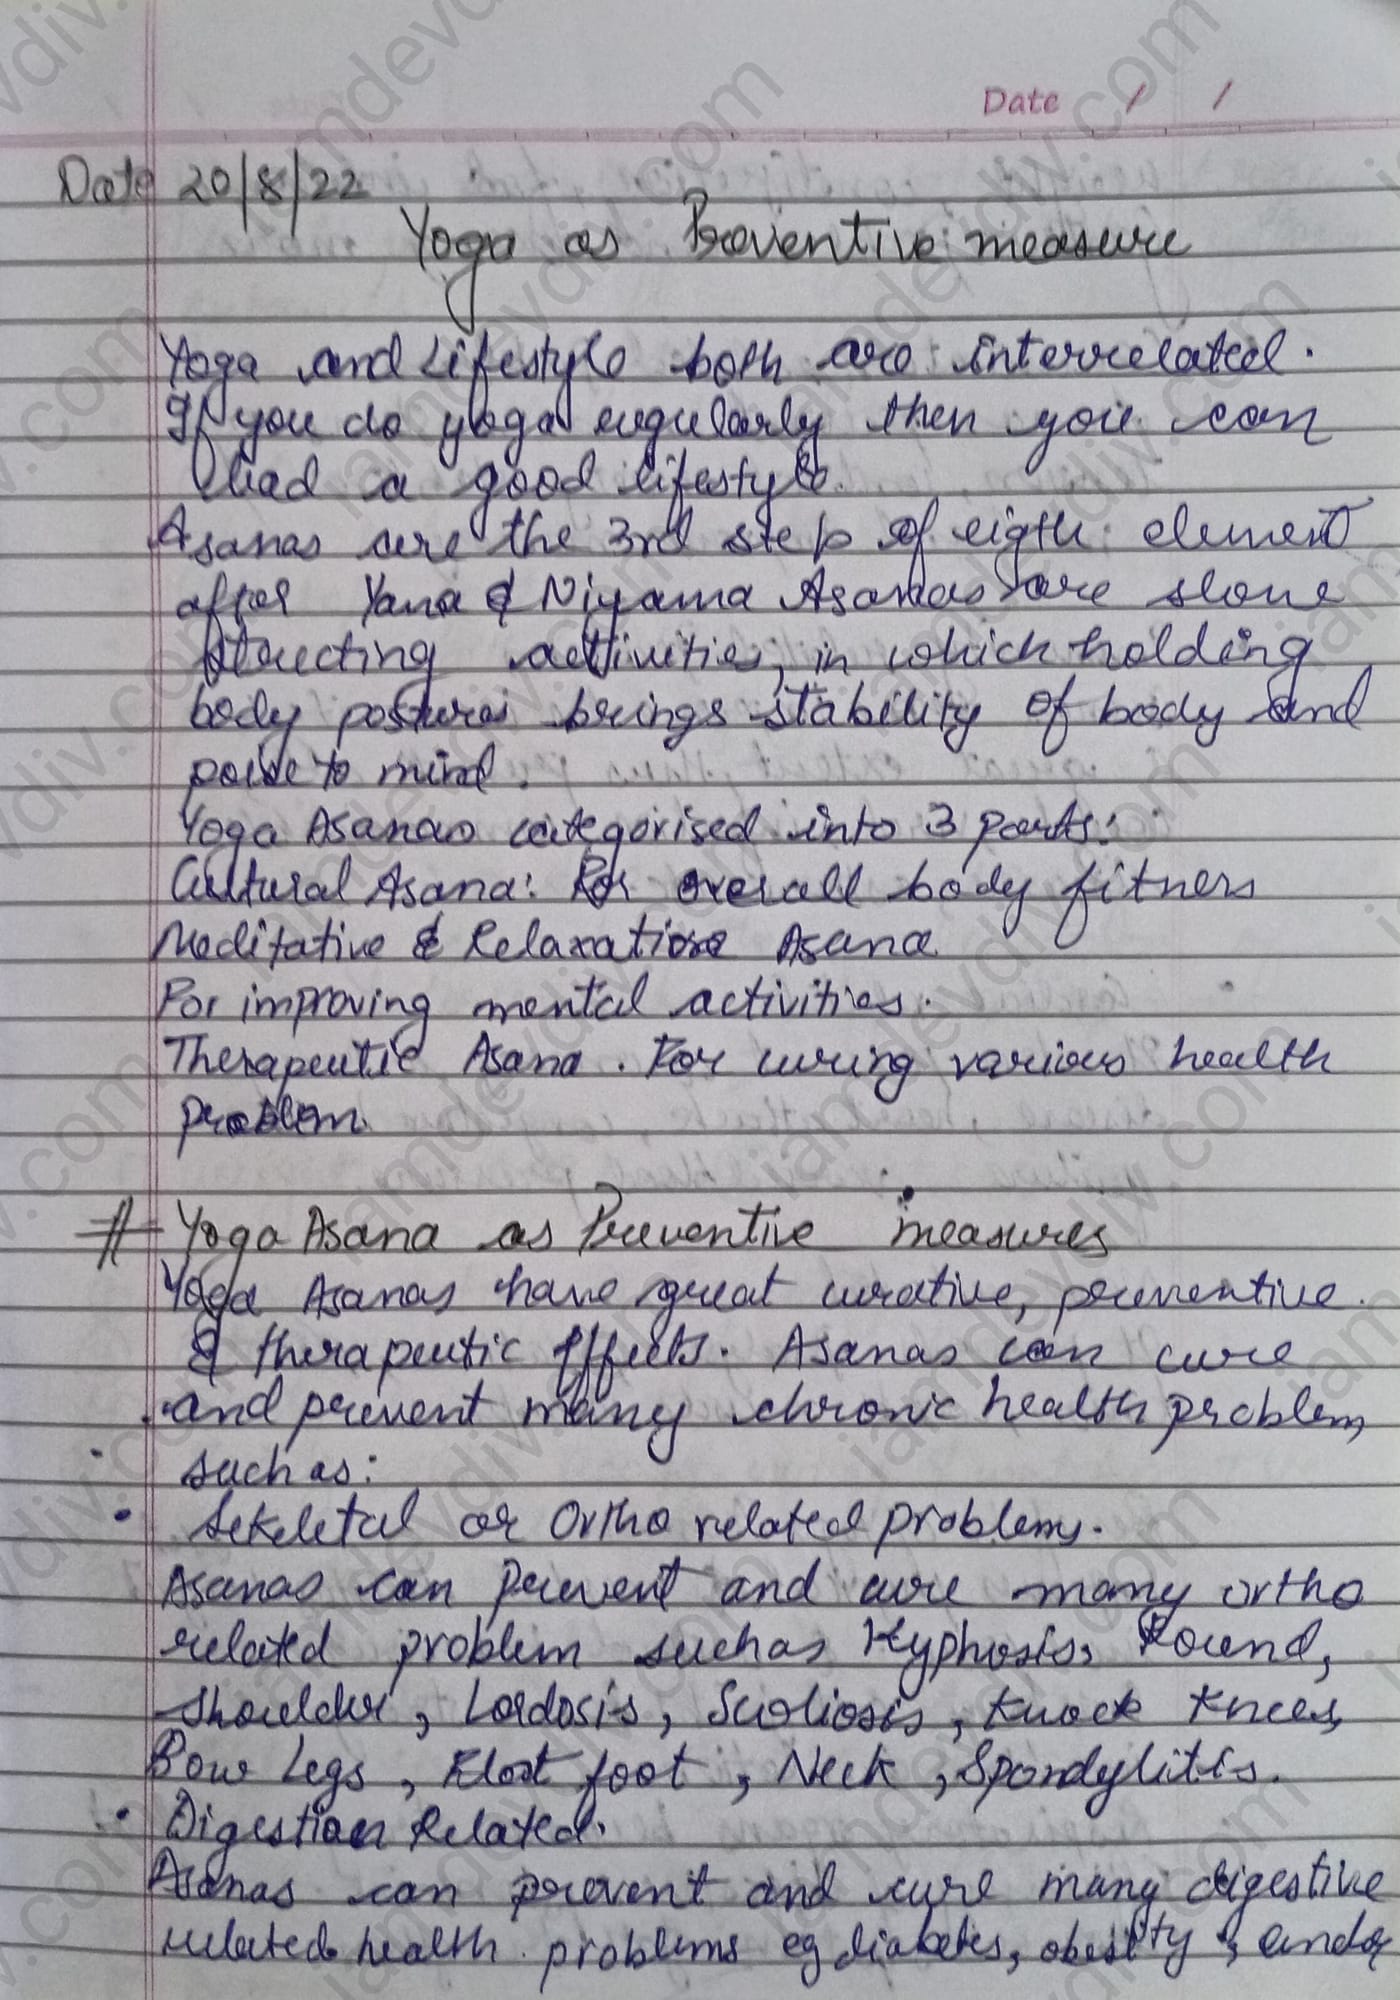 Date / /
Date 20/8/22
Yoga as Preventive measure
Yoga and Lifestyle both are interrelated.
If you do yoga regularly then you can
lead a good lifestyle.
Asanas are the 3rd step of eigth element
after Yana & Niyama Asanas are slone
activities, in which holding
body postures brings stability of body and
poise to mind.
Yoga Asanas categorised into 3 parts:
Cultural Asana: For overall body fitness
Meditative & Relaxation Asana
For improving mental activities.
Therapeutic Asana. For curing various health
problem.
# Yoga Asana as Preventive measures
Yoga Asanas have great curative, preventive
& therapeutic effects. Asanas can cure
and prevent many chronic health problem,
such as:
• Sekeletal or Ortho related problems.
Asanas can prevent and cure many ortho
related problem such as Kyphosis, Round,
shoulder, Lordosis, Scoliosis, Knock Knees,
Bow Legs, Flat foot, Neck, Spondylitis.
• Digestion Related.
Asanas can prevent and cure many digestive
related health problems eg diabetes, obesity,
iamdevdiv.com